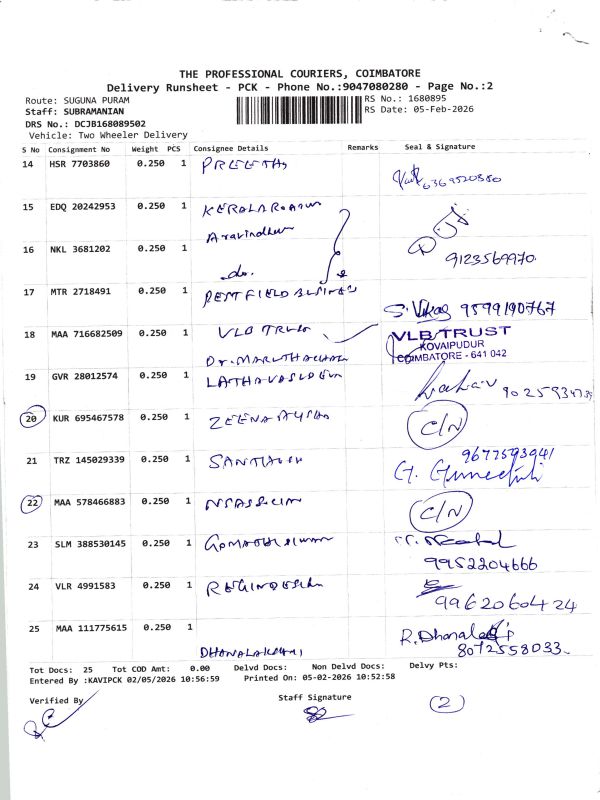 THE PROFESSIONAL COURIERS, COIMBATORE
Delivery Runsheet - PCK - Phone No.:9047080280 - Page No.:2
Route: SUGUNA PURAM
RS No.: 1680895
Staff: SUBRAMANIAN
RS Date: 05-Feb-2026
DRS No.: DCJB168089502
Vehicle: Two Wheeler Delivery
S No Consignment No Weight PCS Consignee Details Remarks Seal & Signature
14 HSR 7703860 0.250 1 PREETHI
6369520880
15 EDQ 20242953 0.250 1
Aravindhan
16 NKL 3681202 0.250 1 do.
9123569970
17 MTR 2718491 0.250 1 BEST FIELD BUSINES
S. Vikas 9599190767
18 MAA 716682509 0.250 1 VLB TRUST
VLB TRUST
KOVAIPUDUR
COIMBATORE - 641 042
19 GVR 28012574 0.250 1 LATHAVASUDEVA
20 KUR 695467578 0.250 1 ZEENA
C/N
21 TRZ 145029339 0.250 1 SANTHOSH
9677593941
22 MAA 578466883 0.250 1
C/N
23 SLM 388530145 0.250 1
9952204666
24 VLR 4991583 0.250 1
9962060424
25 MAA 111775615 0.250 1
DHANALAKSHMI
R. Dhanalakshmi
8072558033
Tot Docs: 25 Tot COD Amt: 0.00 Delvd Docs: Non Delvd Docs: Delvy Pts:
Entered By :KAVIPCK 02/05/2026 10:56:59 Printed On: 05-02-2026 10:52:58
Verified By
Staff Signature
(2)